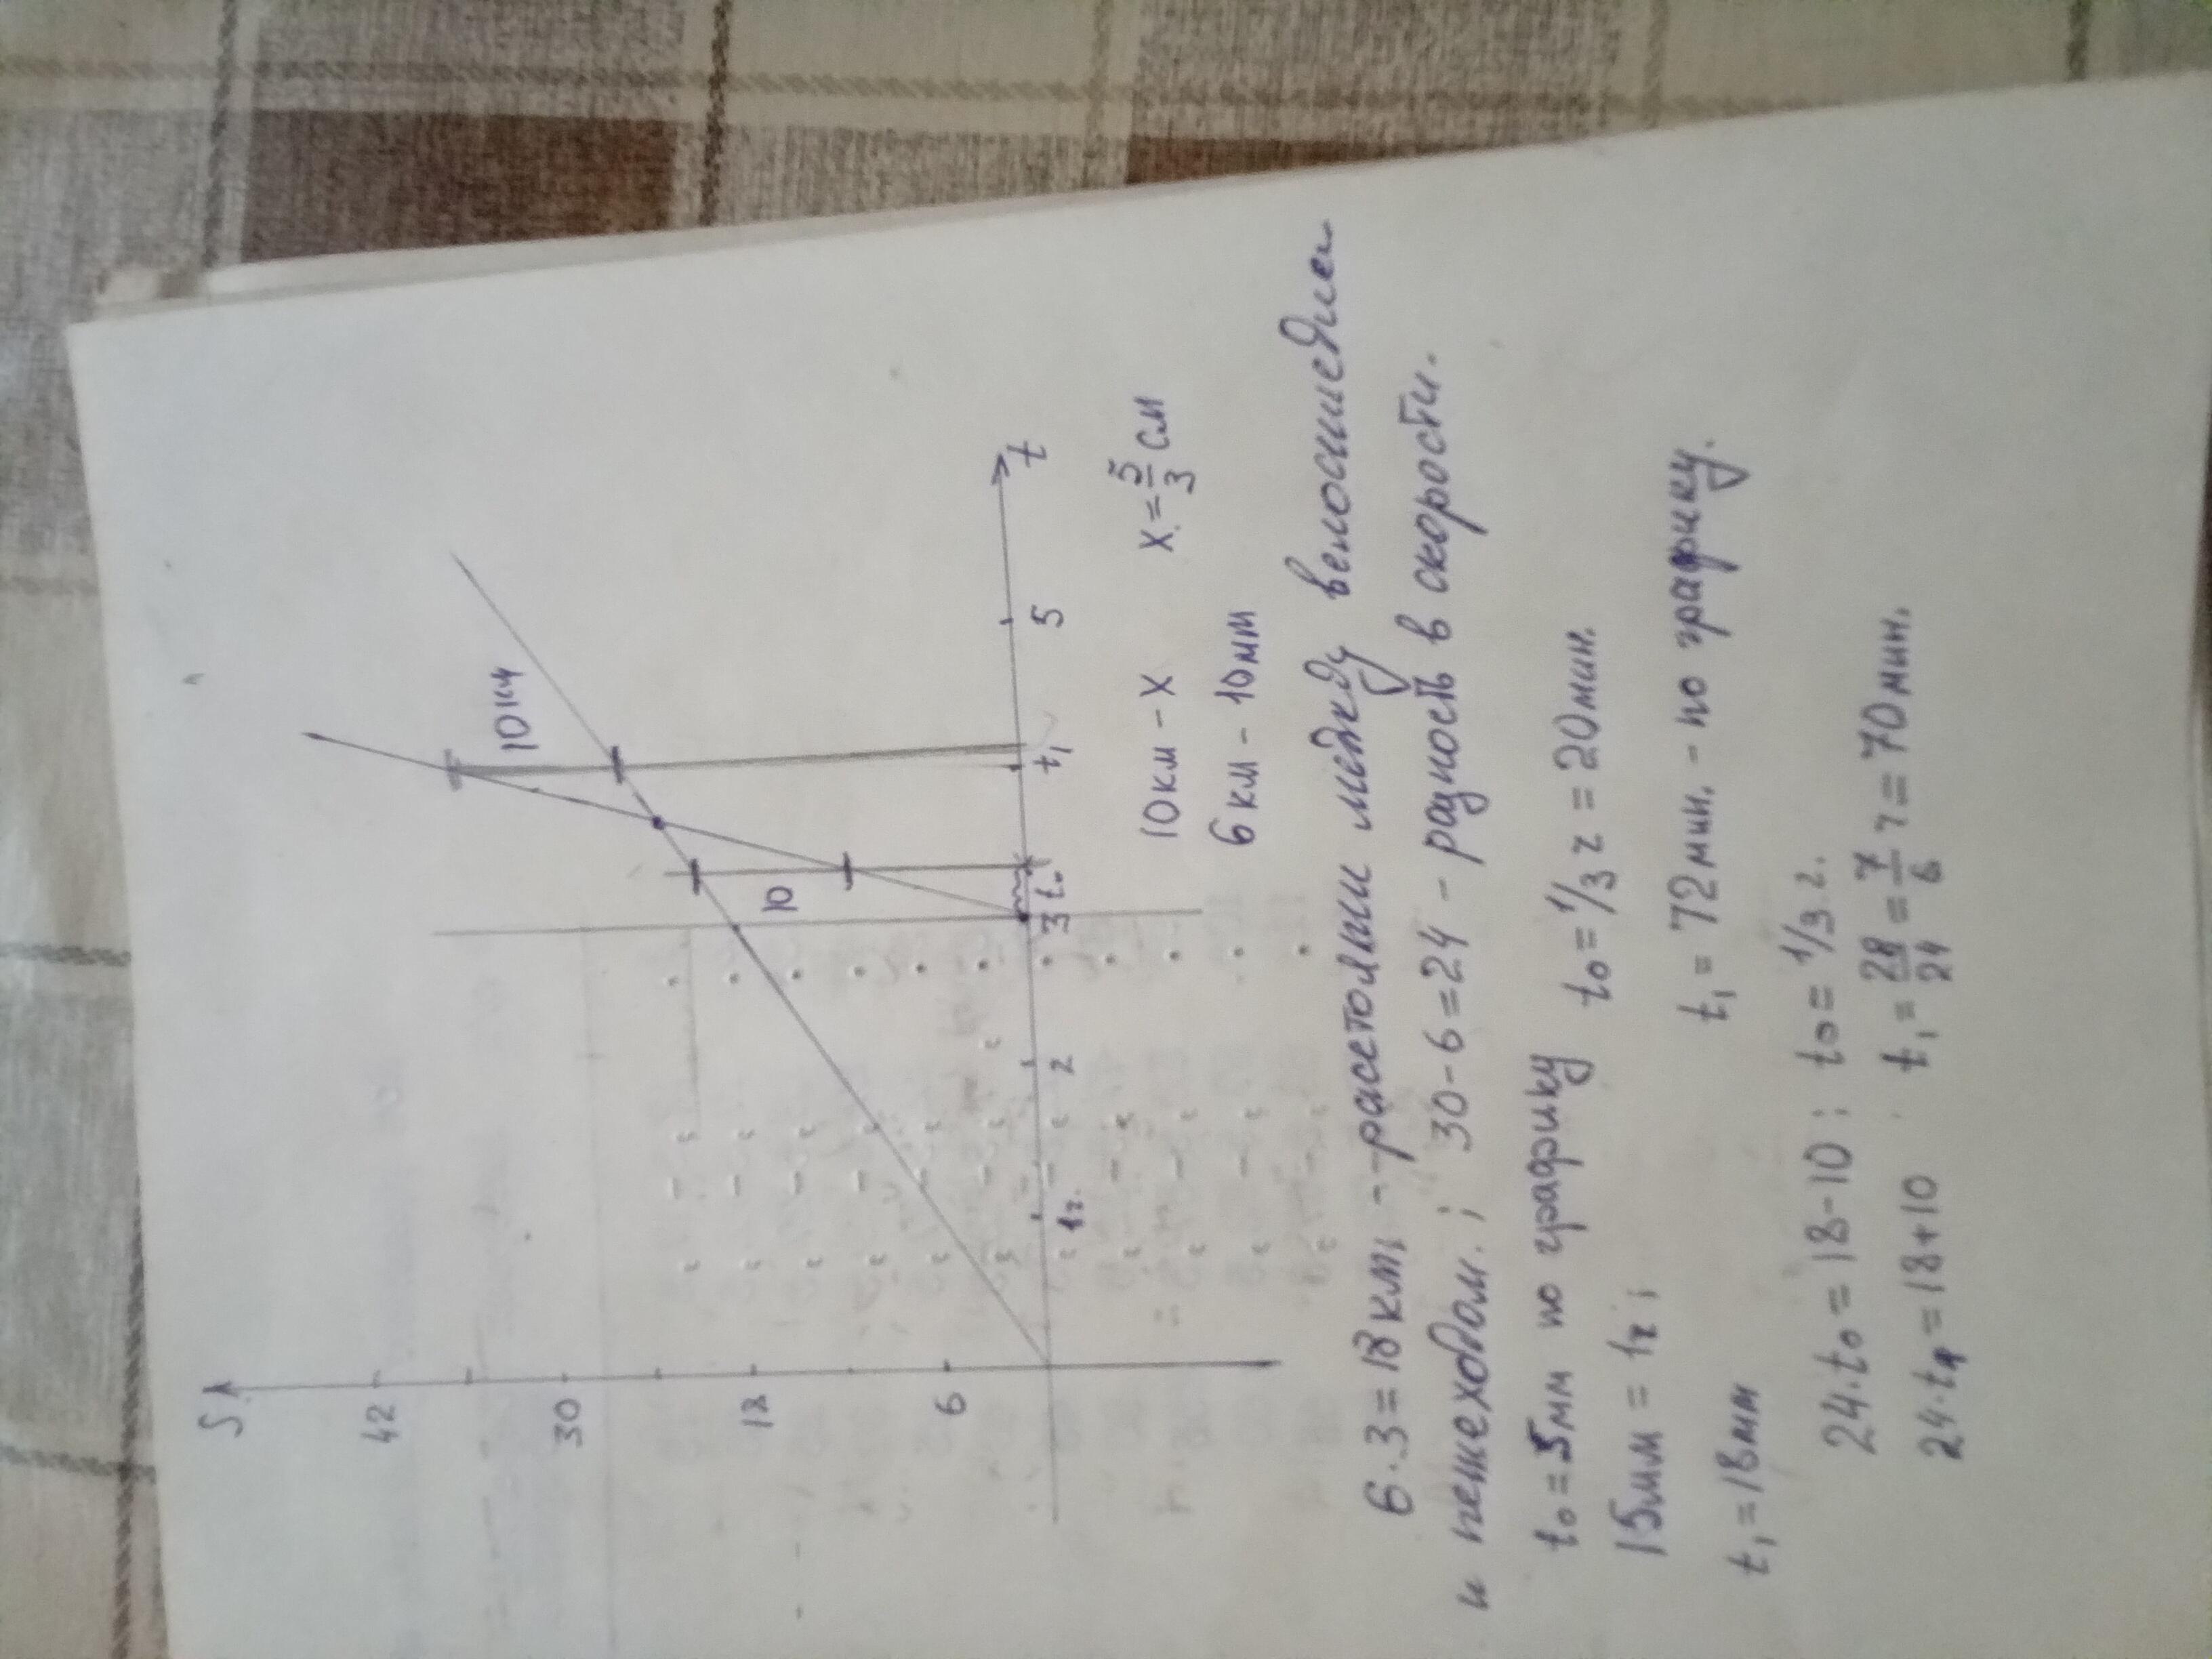 S
42
30
18
6
10км
10
1г.
2
3
t₀
t₁
5
t
10км - X X = 5/3 см
6 км - 10мм
6·3=18км, - расстояние между велосипедом
и пешеходом. ; 30-6=24 - разность в скорости.
t₀=5мм по графику t₀=1/3 г = 20мин.
15мм = 1г ;
t₁=18мм t₁ = 72мин. - по графику.
24·t₀=18-10 ; t₀ = 1/3 г.
24·t₁=18+10 t₁ = 28/24 = 7/6 г = 70мин.